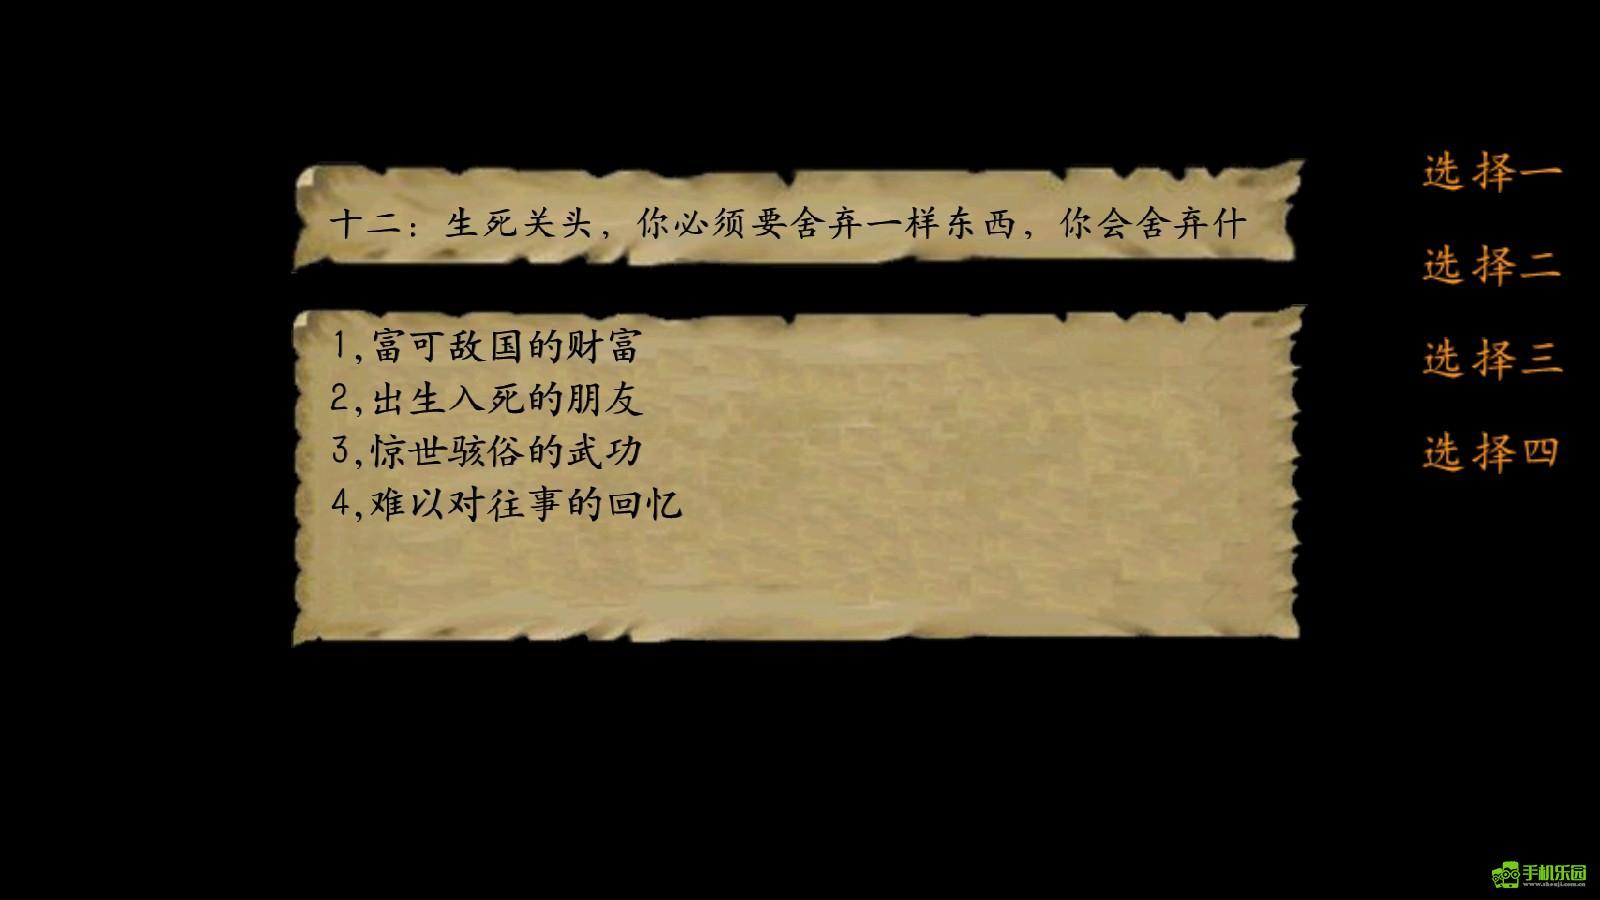 十二：生死关头，你必须要舍弃一样东西，你会舍弃什
1,富可敌国的财富
2,出生入死的朋友
3,惊世骇俗的武功
4,难以对往事的回忆
选择一
选择二
选择三
选择四
手机乐园
www.shouji.com.cn